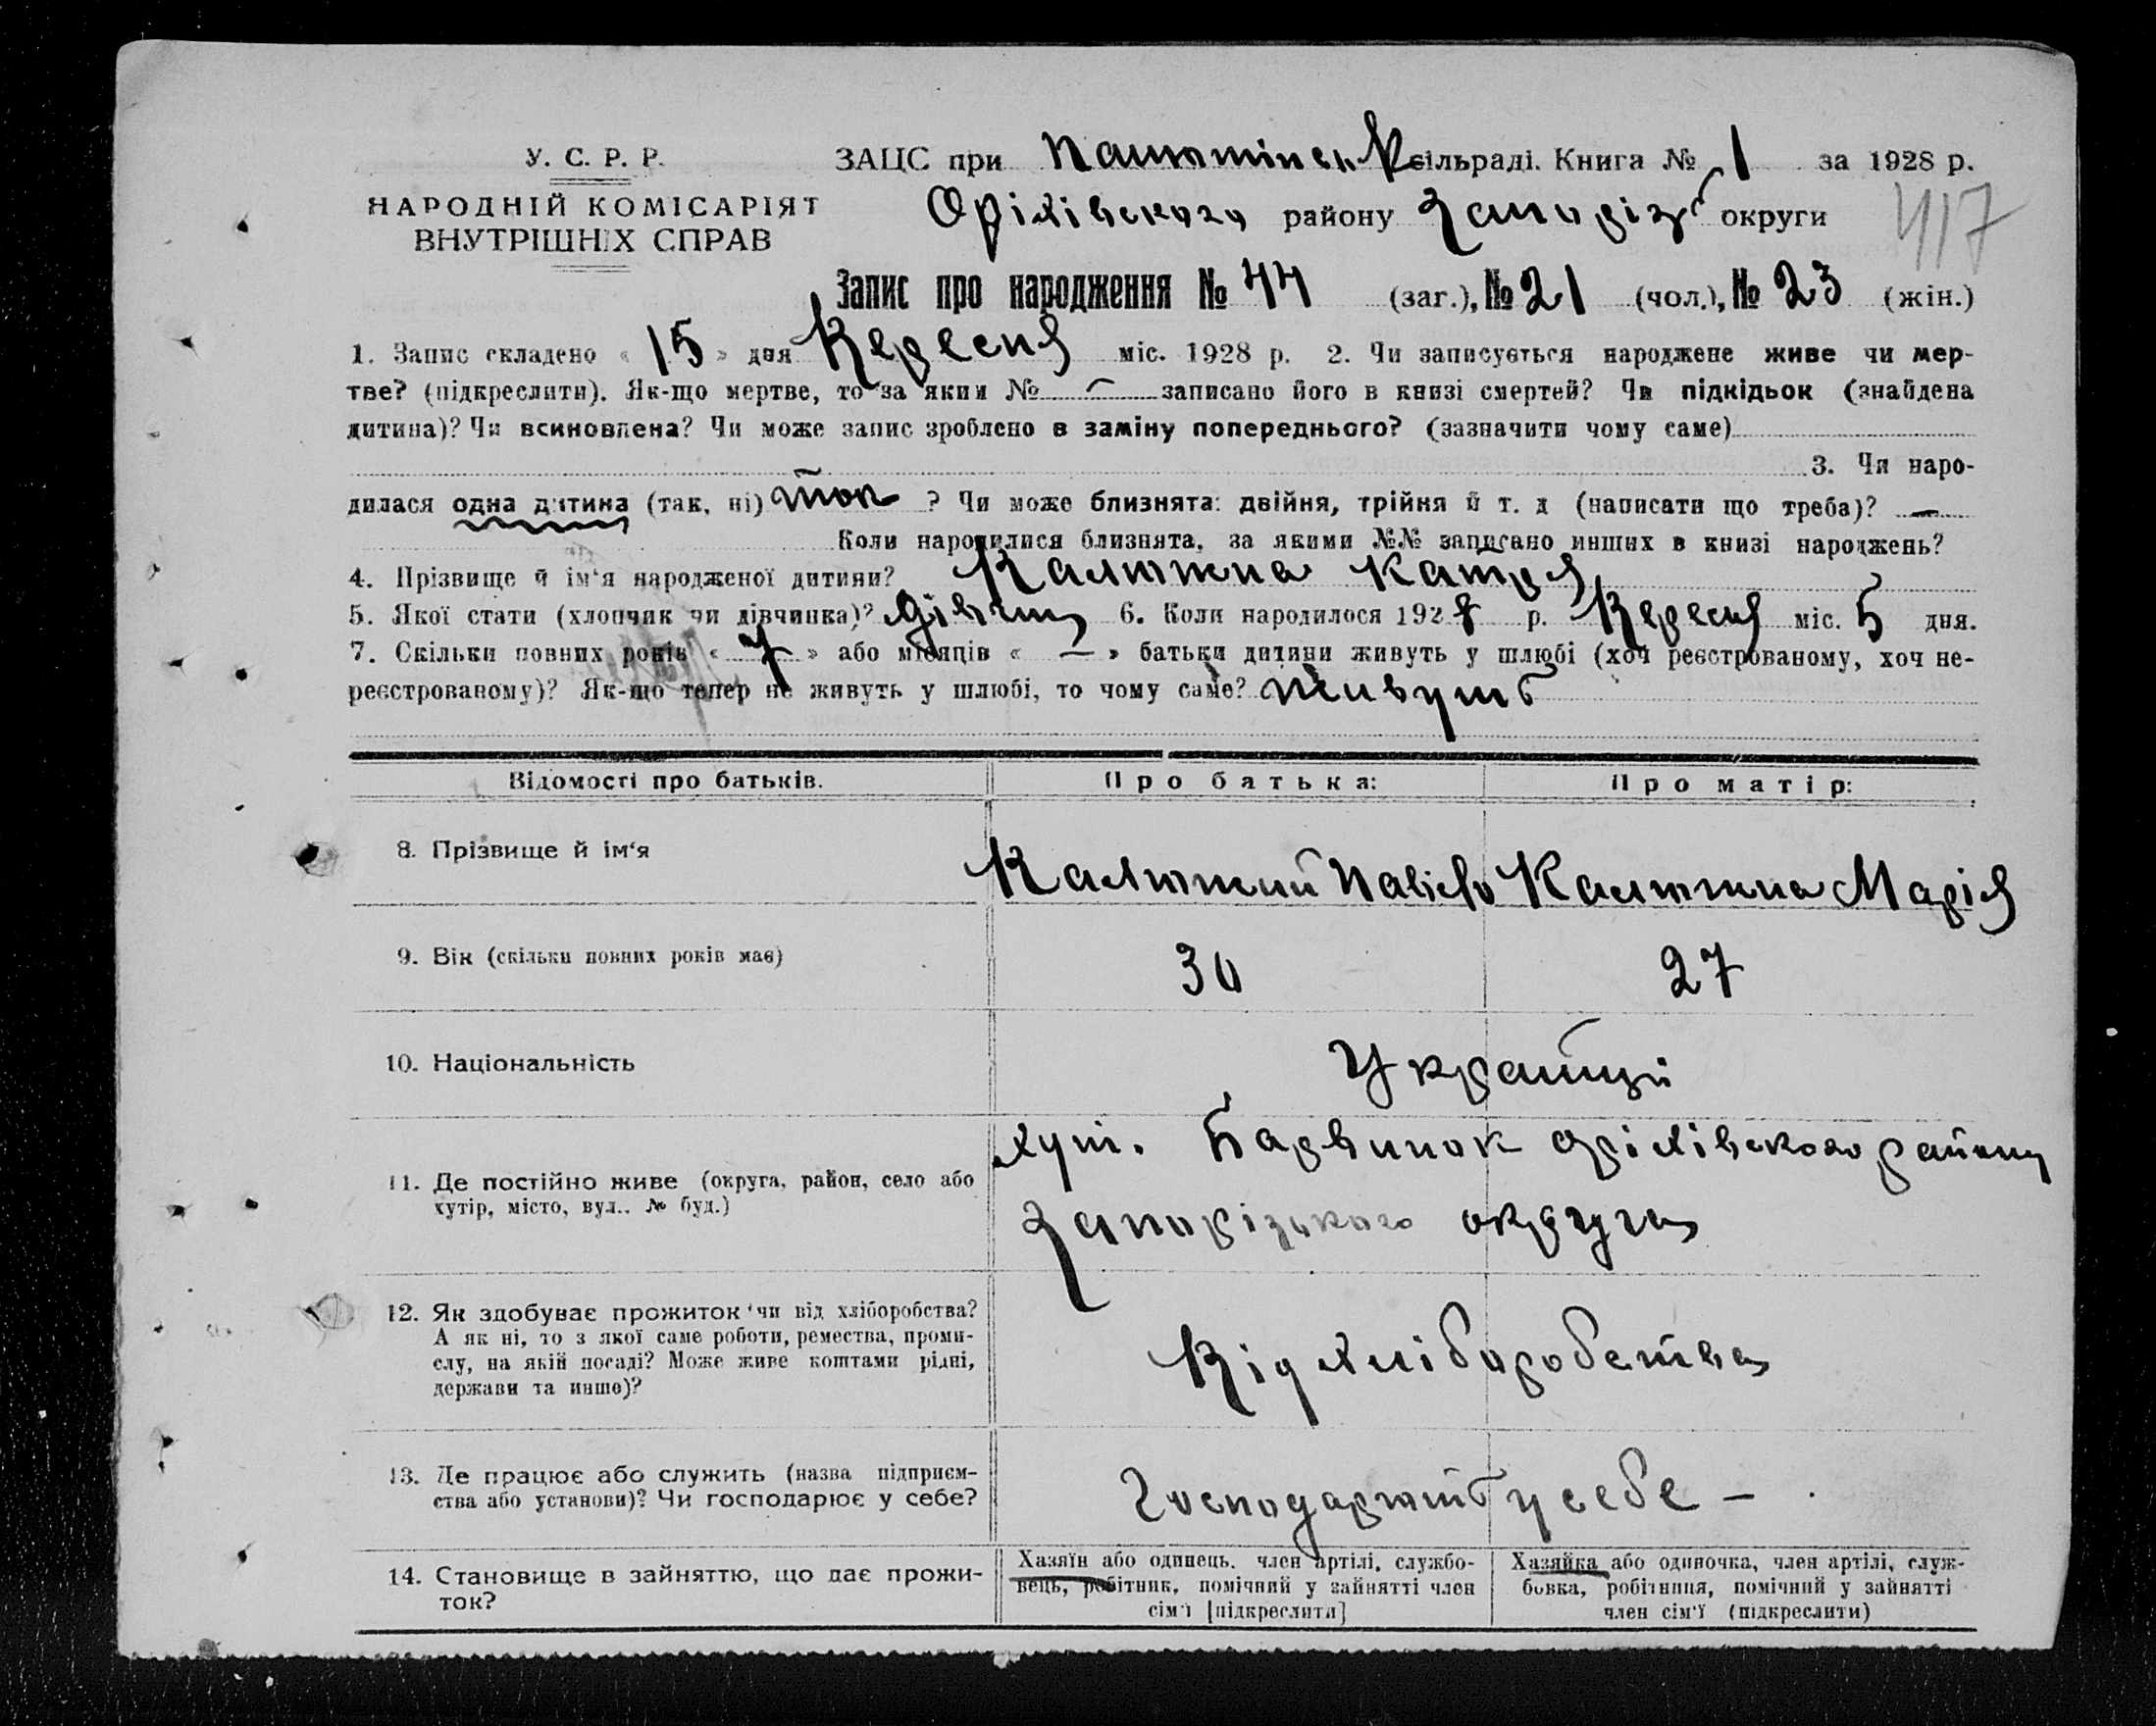 У. С. Р. Р.
НАРОДНІЙ КОМІСАРІЯТ
ВНУТРІШНІХ СПРАВ
ЗАЦС при сільраді. Книга № 1 за 1928 р.
Оріхівського району Запоріз округи
417
Запис про народження № 44 (заг.), № 21 (чол.), № 23 (жін.)
1. Запис складено « 15 » дня Вересня міс. 1928 р. 2. Чи записується народжене живе чи мер-
тве? (підкреслити). Як-що мертве, то за яким № — записано його в книзі смертей? Чи підкідьок (знайдена
дитина)? Чи всиновлена? Чи може запис зроблено в заміну попереднього? (зазначити чому саме)
3. Чи наро-
дилася одна дитина (так, ні) так ? Чи може близнята: двійня, трійня й т. д (написати що треба)? —
Коли народилися близнята, за якими №№ записано инших в книзі народжень?
4. Прізвище й ім‘я народженої дитини? Калюжна Катря
5. Якої стати (хлопчик чи дівчинка)? Дівчин 6. Коли народилося 1928 р. Вересня міс. 5 дня.
7. Скільки повних років « 7 » або місяців « — » батьки дитини живуть у шлюбі (хоч реєстрованому, хоч не-
реєстрованому)? Як-що тепер не живуть у шлюбі, то чому саме? Живуть
Відомості про батьків. Про батька: Про матір:
8. Прізвище й ім‘я Калюжний Павло Калюжна Марія
9. Вік (скільки повних років має) 30 27
10. Національність Українці
11. Де постійно живе (округа, район, село або
хутір, місто, вул.. № буд.)
хут. Барвинок Оріхівського району
Запорізького округа
12. Як здобуває прожиток чи від хліборобства?
А як ні, то з якої саме роботи, ремества, проми-
слу, на якій посаді? Може живе коштами рідні,
держави та инше)?
Від хліборобства
13. Де працює або служить (назва підприєм-
ства або установи)? Чи господарює у себе?
Господарюють у себе —
14. Становище в зайняттю, що дає прожи-
ток?
Хазяїн або одинець. член артілі, службо-
вець, робітник, помічний у зайнятті член
сім‘ї [підкреслити]
Хазяйка або одиночка, член артілі, служ-
бовка, робітниця, помічний у зайнятті
член сім‘ї (підкреслити)